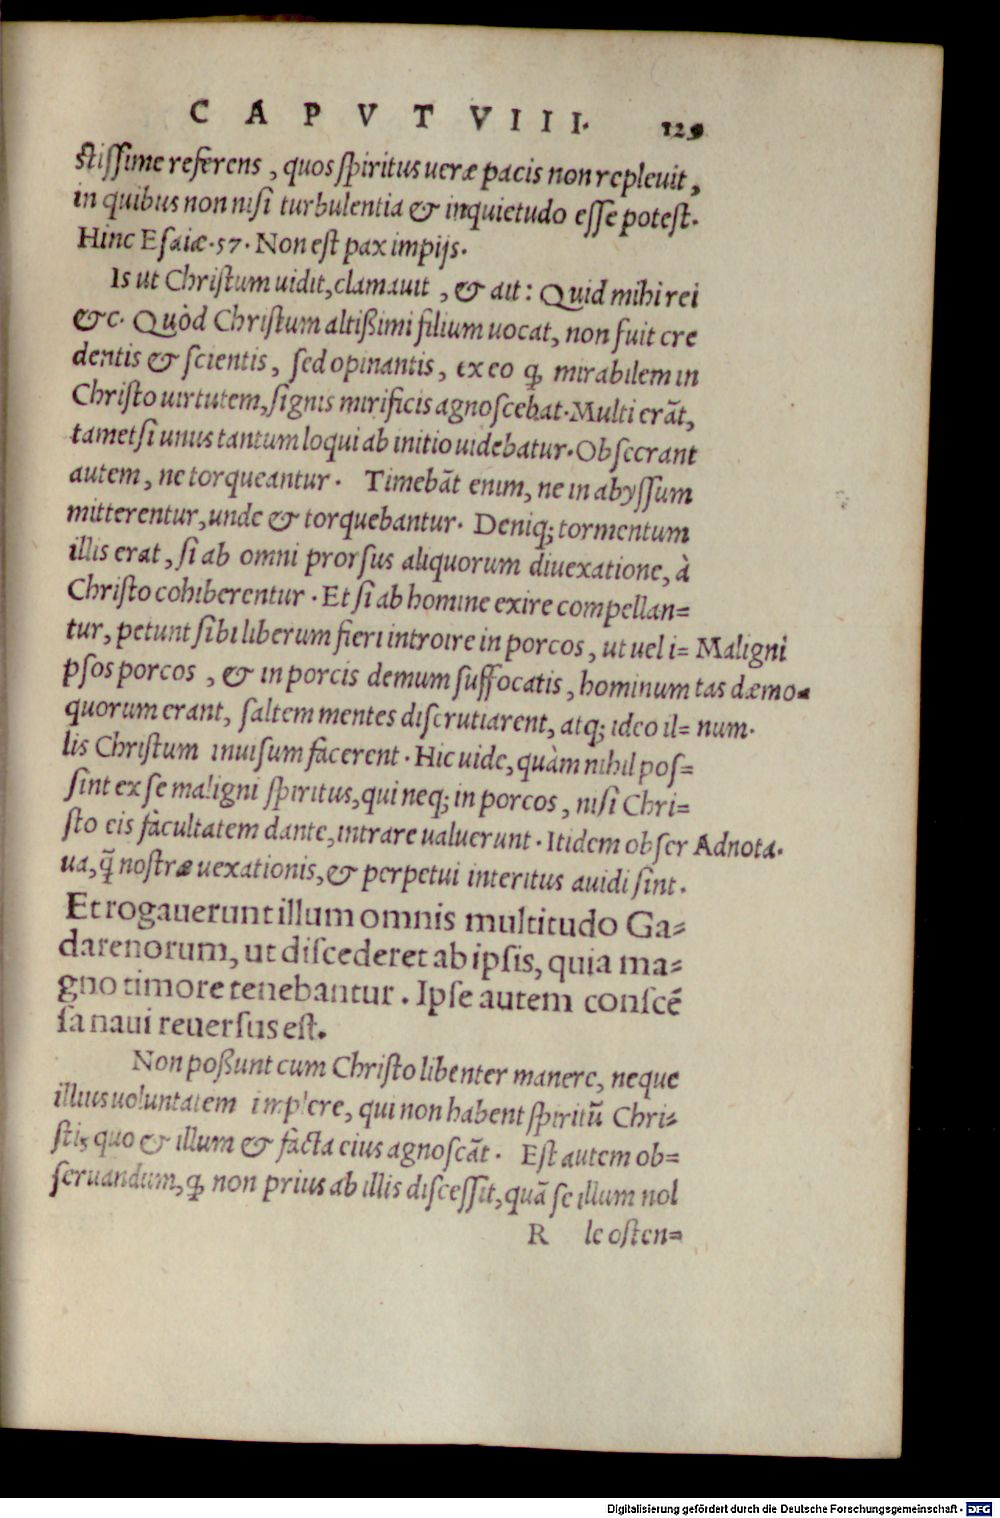 CAPVT VIII. 129
stissime referens, quos spiritus ueræ pacis non repleuit,
in quibus non nisi turbulentia & inquietudo esse potest.
Hinc Esaiæ.57. Non est pax impijs.
Is ut Christum uidit, clamauit, & ait: Quid mihi rei
&c. Quòd Christum altißimi filium uocat, non fuit cre
dentis & scientis, sed opinantis, ex eo ꝙ mirabilem in
Christo uirtutem, signis mirificis agnoscebat. Multi erãt,
tametsi unus tantum loqui ab initio uidebatur. Obsecrant
autem, ne torqueantur. Timebãt enim, ne in abyssum
mitterentur, unde & torquebantur. Deniq; tormentum
illis erat, si ab omni prorsus aliquorum diuexatione, à
Christo cohiberentur. Et si ab homine exire compellan=
tur, petunt sibi liberum fieri introire in porcos, ut uel i= Maligni
psos porcos, & in porcis demum suffocatis, hominum tas dæmo=
quorum erant, saltem mentes discrutiarent, atq; ideo il= num.
lis Christum inuisum facerent. Hic uide, quàm nihil pos=
sint ex se maligni spiritus, qui neq; in porcos, nisi Chri=
sto eis facultatem dante, intrare ualuerunt. Itidem obser Adnota.
ua, q̃ nostræ uexationis, & perpetui interitus auidi sint.
Et rogauerunt illum omnis multitudo Ga=
darenorum, ut discederet ab ipsis, quia ma=
gno timore tenebantur. Ipse autem conscẽ
sa naui reuersus est.
Non poßunt cum Christo libenter manere, neque
illius uoluntatem implere, qui non habent spiritũ Chri=
sti, quo & illum & facta eius agnoscãt. Est autem ob=
seruandum, ꝙ non prius ab illis discessit, quã se illum nol
R le osten=
Digitalisierung gefördert durch die Deutsche Forschungsgemeinschaft - DFG